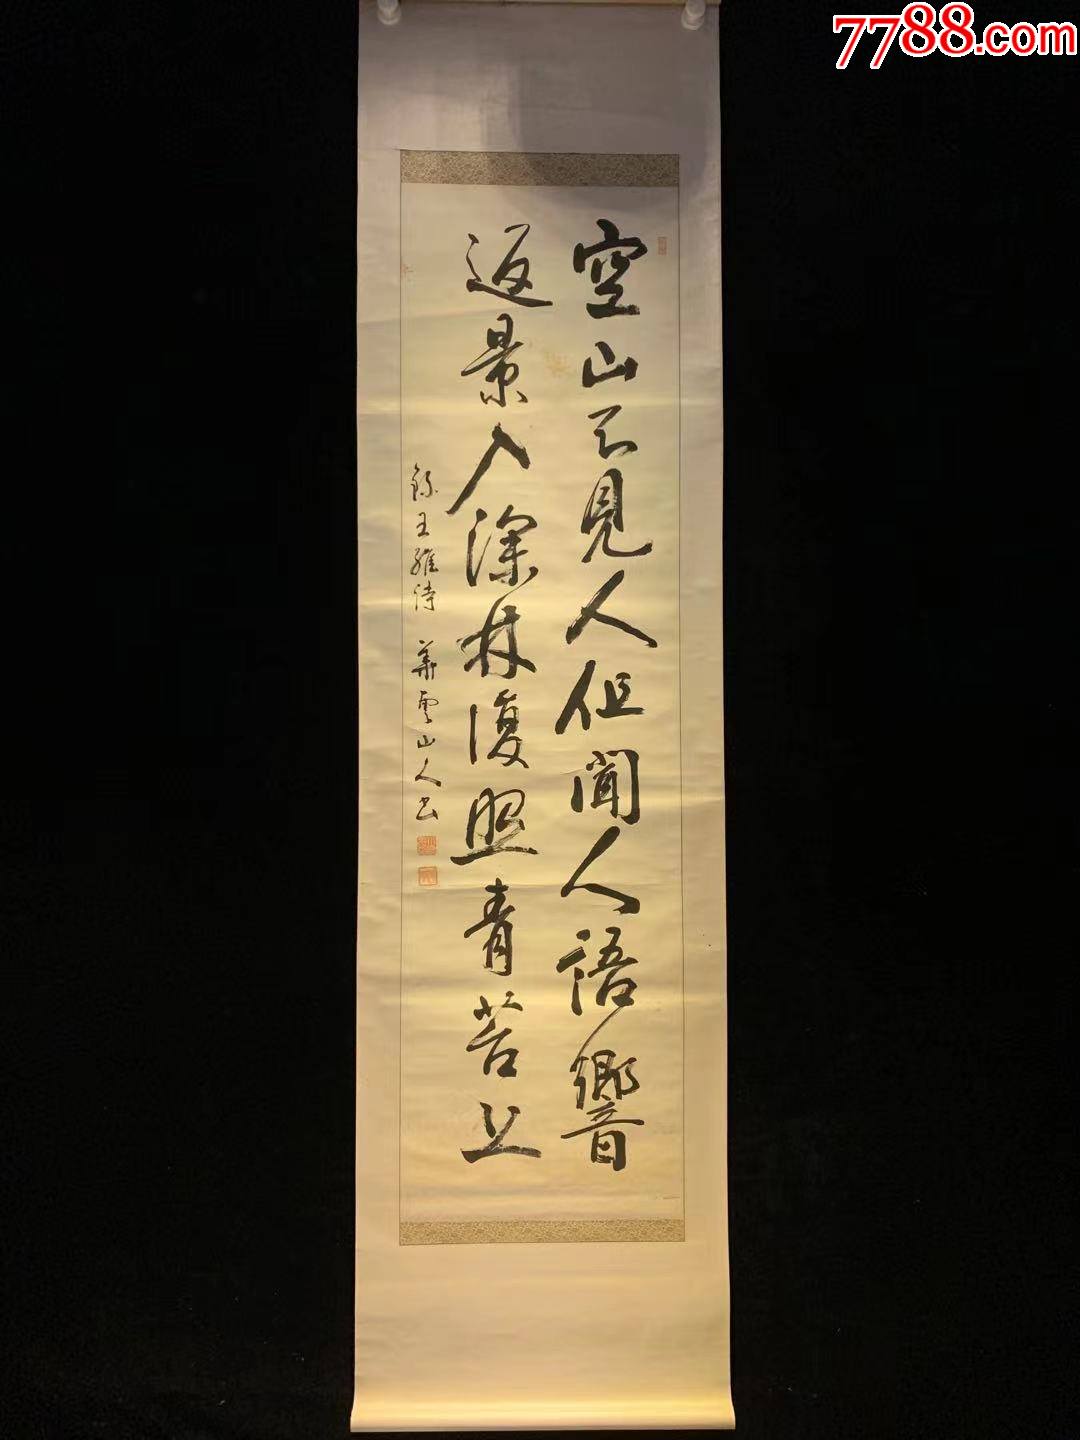 7788.com
空山不見人但聞人語響
返景入深林復照青苔上
錄王維詩 華雲山人書